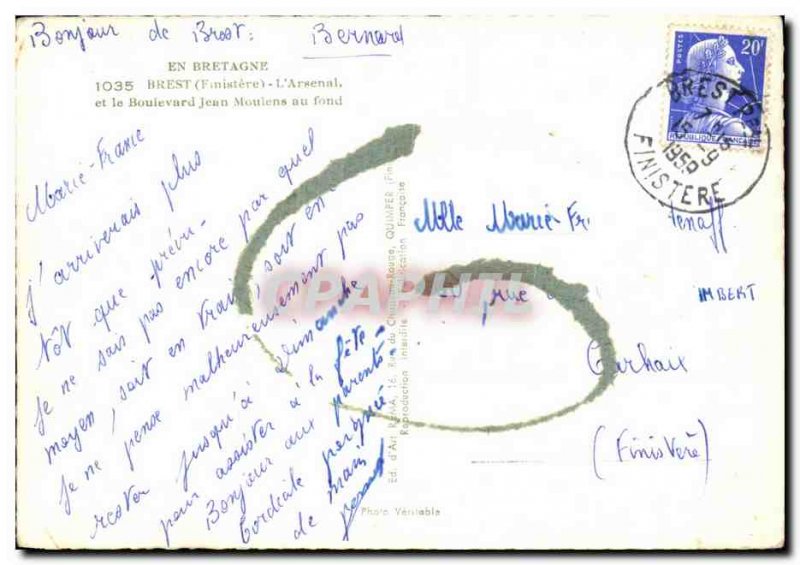 Bonjour de Brest: Bernard
EN BRETAGNE
1035 BREST (Finistère) - L'Arsenal,
et le Boulevard Jean Moulens au fond
Marie-France
J'arriverais plus
tôt que prévu.
Je ne sais pas encore par quel
moyen, soit en train, soit en
Je ne pense malheureusement pas
rester jusqu'à dimanche
pour assister à la fête
Bonjour aux parents.
Cordiale poignée
de main
Photo Véritable
Ed. d'Art 16, Rue du QUIMPER (Fin
Reproduction interdite Française
POSTES
20F
REPUBLIQUE FRANÇAISE
BREST
1959
FINISTERE
Mlle Marie-Fr
rue
IMBERT
Carhaix
(Finistère)
CPAPHIL